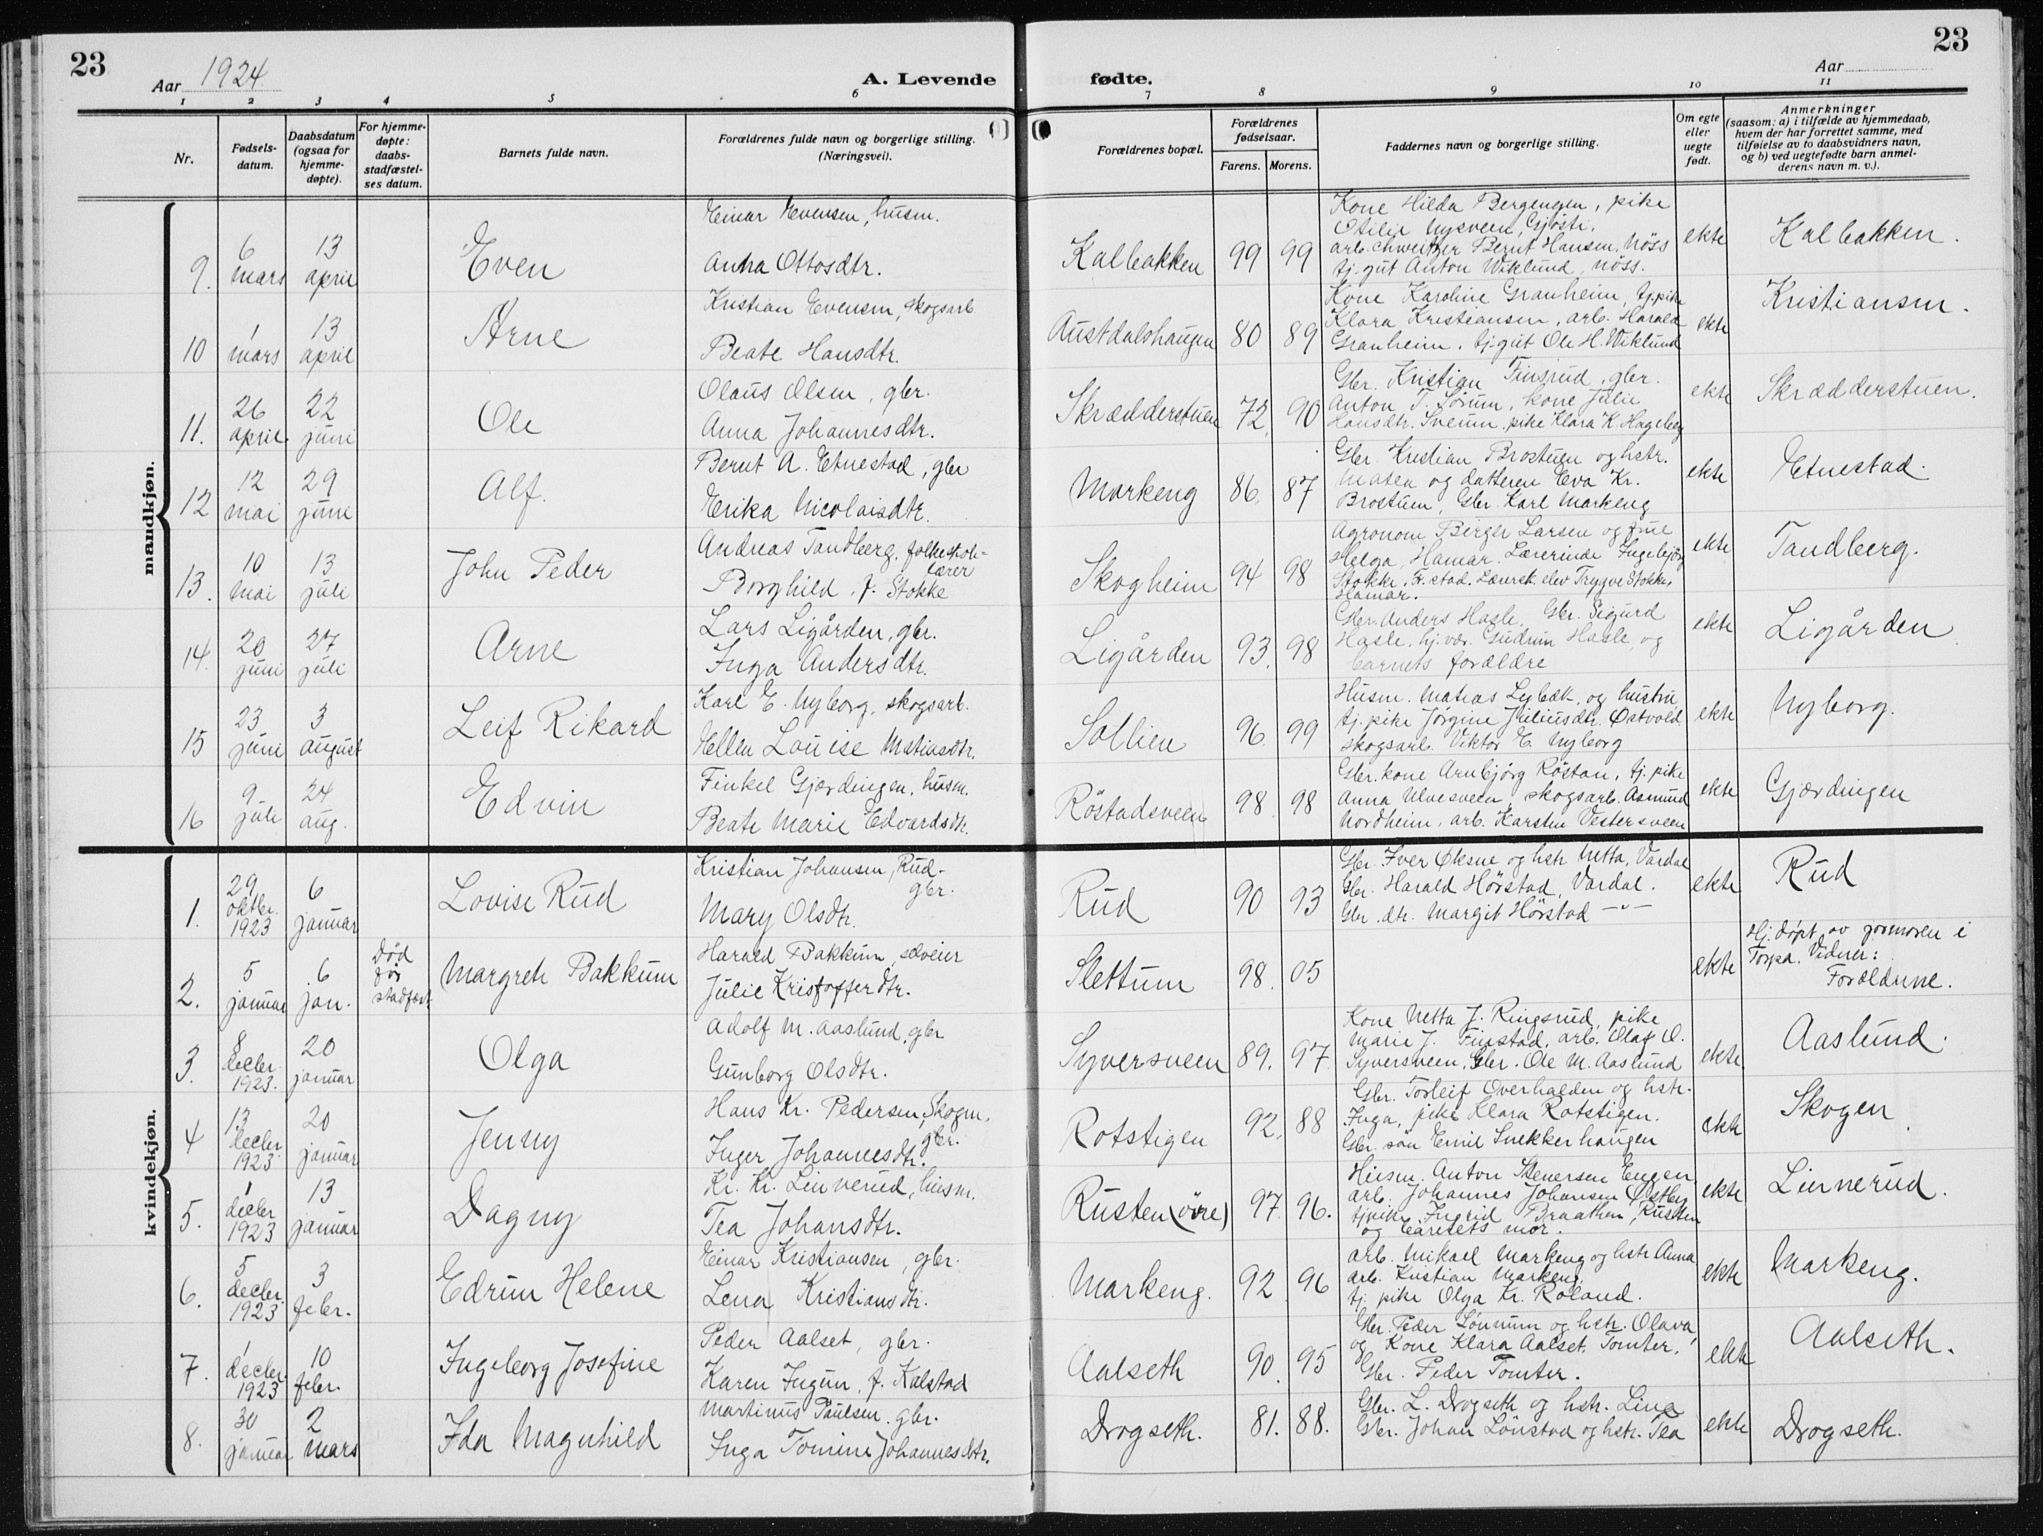 23
23
Aar 1924
A. Levende
fødte.
Aar
1 2 3 4 5 6 7 8 9 10 11
Nr.
Fødsels-
datum.
Daabsdatum
(ogsaa for
hjemme-
døpte).
For hjemme-
døpte:
daabs-
stadfæstel-
ses datum.
Barnets fulde navn.
Forældrenes fulde navn og borgerlige stilling.
(Næringsvei).
Forældrenes bopæl.
Forældrenes
fødselsaar.
Farens. Morens.
Faddernes navn og borgerlige stilling.
Om egte
eller
uegte
født.
Anmerkninger
(saasom: a) i tilfælde av hjemmedaab,
hvem der har forrettet samme, med
tilføielse av to daabsvidners navn,
og b) ved uegtefødte barn anmel-
derens navn m. v.).
mandkjøn.
9. 6 mars
13 april
Even
Einar Evensen, husm.
Anna Ottosdtr.
Kalbakken
99 99
Kone Hilda Bergengen, pike
Otilie Nysveen, Gjøsti,
arb. Bernt Hansen, Nöss
tj. gut Anton Wiklund, Nöss.
ekte
Kalbakken.
10 1 mars
13 april
Arne
Kristian Evensen, skogsarb
Beate Hansdtr.
Austdalshaugen
80 89
Kone Karoline Granheim, tj. pike
Klara Kristiansen, arb. Harald
Granheim, tj. gut Ole H. Wiklund
ekte
Kristiansen.
11. 26 april
22 juni
Ole
Olaus Olsen, gbr.
Anna Johannesdtr.
Skrædderstuen
72. 90
Gbr. Kristian Finsrud, gbr.
Anton T. Sörum, kone Julie
Hansdtr. Sveum, pike Klara K. Hageberg
ekte
Skrædderstuen.
12 12 mai
29 juni
Alf.
Bernt A. Etnestad, gbr
Erika Nicolaisdtr.
Markeng
86. 87
Gbr. Kristian Brostuen og hstr.
Matea og datteren Eva Kr.
Brostuen, Gbr. Karl Markeng
ekte
Etnestad.
13. 10 mai
13 juli
John Peder
Andreas Tandberg, folkeskole-
lærer
Borghild, f. Stokke
Skogheim
94 98
Agronom Birger Larsen og frue
Helga, Hamar. Lærerinde Ingebjörg
Stokke, F.stad. Lærersk. elev Trygve Stokke,
Hamar.
ekte
Tandberg.
14. 20 juni
27 juli
Arne
Lars Ligården, gbr.
Inga Andersdtr.
Ligården
93. 98
Gbr. Anders Hasle. Gbr. Sigurd
Hasle, hj.vær. Gudrun Hasle og
barnets forældre
ekte
Ligården
15 23 juni
3 august
Leif Rikard
Karl E. Nyborg, skogsarb.
Hellen Louise Matiasdtr.
Sollien
96. 99
Husm. Matias Lybæk og hustru
tj. pike Jørgine Juliusdtr. Østvold
skogsarb. Viktor E. Nyborg
ekte
Nyborg.
16 9 juli
24 aug.
Edvin
Finkel Gjærdingen, husm.
Beate Marie Edvardsdtr.
Röstadsveen
98. 98
Gbr. kone Arnbjörg Röstan, tj. pike
Anna Ulvesveen, skogsarb. Asmund
Nordheim, arb. Karsten Vestersveen
ekte
Gjærdingen
kvindekjøn.
1. 29 oktbr. 1923
6 januar
Lovise Rud
Kristian Johansen, Rud-
gbr.
Mary Olsdtr.
Rud
90 93
Gbr. Iver Øksne og hstr Netta, Vardal
Gbr. Harald Hörstad, Vardal.
Gbr. dtr. Margit Hörstad —"—
ekte
Rud
2. 5 januar
6 jan.
Död
för
stadfæst.
Margreth Bakkum
Harald Bakkum, selveier
Julie Kristoffersdtr.
Slettum
98. 05
ekte
Hj. döpt av jormoren i
Torpa. Vidner:
Forældrene.
3. 8 decbr. 1923.
20 januar
Olga
Adolf M. Aaslund, gbr
Gunborg Olsdtr.
Syversveen
89. 97.
Kone Netta J. Ringsrud, pike
Marie J. Finstad, arb. Olaf O.
Syversveen, Gbr. Ole M. Aaslund
ekte
Aaslund.
4 13 decbr. 1923
20 januar
Jenny
Hans Kr. Pedersen, Skogen,
gbr.
Inger Johannesdtr.
Rotstigen
92. 88
Gbr. Torleif Overhalden og hstr.
Inga, pike Klara Rotstigen.
Gbr. sön Emil Snekkerhaugen
ekte
Skogen
5. 1 decbr 1923
13 januar
Dagny
Kr. Kr. Linnerud, husm.
Tea Johansdtr.
Rusten (övre)
97. 96.
Husm. Anton Stenersen Engen
arb. Johannes Johansen Östby
tjpike Ingrid Braathen, Rusten
og barnets mor.
ekte
Linnerud.
6. 5 decbr. 1923
3 febr.
Edrun Helene
Einar Kristiansen, gbr.
Lena Kristiansdtr.
Markeng.
92. 96
arb. Mikael Markeng og hstr Anna
arb. Kristian Markeng.
tj. pike Olga Kr. Roland.
ekte
Markeng.
7. 1 decbr 1923
10 febr.
Ingeborg Josefine
Peder Aalset, gbr.
Karen Ingun, f. Kalstad
Aalseth
90. 95
Gbr. Peder Lönnum og hstr. Olava,
og Kone Klara Aalset, Tomter,
Gbr. Peder Tomter.
ekte
Aalseth.
8. 30 januar
2 mars
Ida Magnhild
Martinus Paulsen, gbr.
Inga Tomine Johannesdtr.
Drogseth.
81. 88.
Gbr. L. Drogseth og hstr. Lina
Gbr. Johan Lönstad og hstr. Tea
ekte
Drogseth.